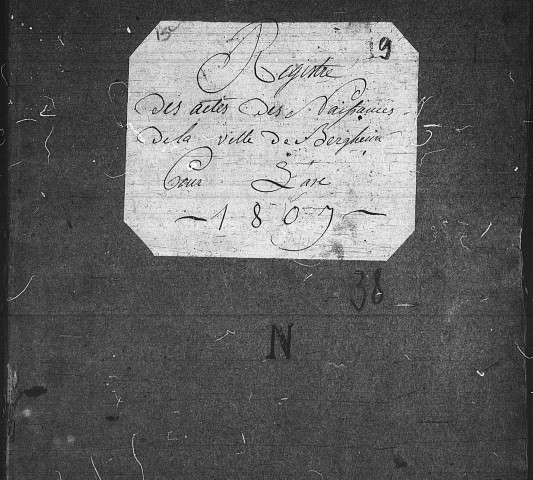 9
Registre
des actes des Naissances
de la ville de Bergheim
Pour L'an
- 1807 -
38
N